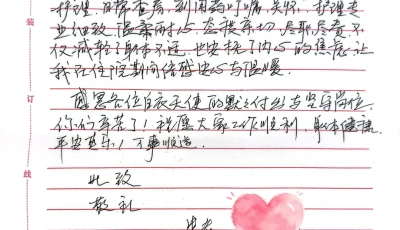 护理、日常查房，到用药叮嘱、关怀，护理专
业细致，温柔耐心，态度亲切，尽职尽责，不
仅减轻了身体不适，也安抚了内心的焦虑，让
我在住院期间倍感安心与温暖。
感恩各位白衣天使的默默付出与坚守岗位，
你们辛苦了！祝愿大家工作顺利，身体健康，
平安喜乐！万事顺遂。
此致
敬礼
装
订
线